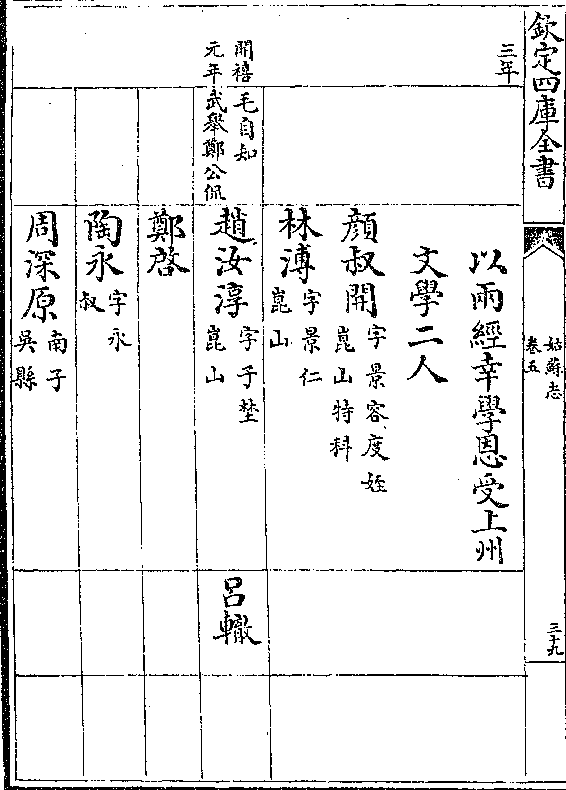 欽定四庫全書
姑蘇志
卷五
三十九
三年
以兩經幸學恩受上州
文學二人
顔叔開
字景容度姪
崑山特科
林溥
字景仁
崑山
開禧
元年
毛自知
武舉鄭公侃
趙汝淳
字子埜
崑山
呂轍
鄭啓
陶永
字永
叔
周深原
南子
吳縣